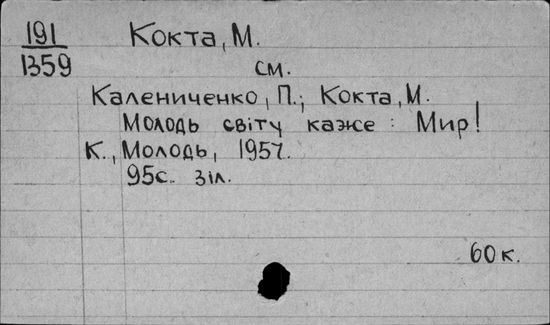 191
1359
Кокта, М.
см.
Калениченко, П.; Кокта, М.
Молодь світу каже: Мир!
К., Молодь, 1957.
95с. з іл.
60 к.